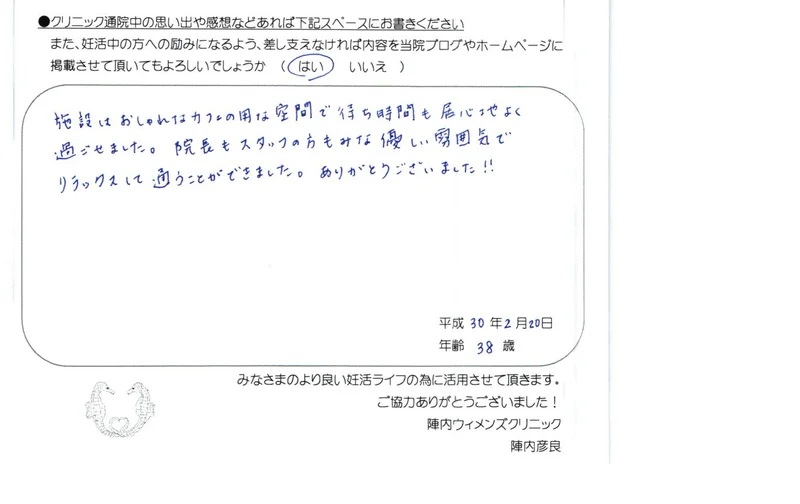 ●クリニック通院中の思い出や感想などあれば下記スペースにお書きください
また、妊活中の方への励みになるよう、差し支えなければ内容を当院ブログやホームページに
掲載させて頂いてもよろしいでしょうか （ はい いいえ ）
施設はおしゃれなカフェの用な空間で待ち時間も居心地よく
過ごせました。院長もスタッフの方もみな優しい雰囲気で
リラックスして通うことができました。ありがとうございました!!
平成 30 年 2 月 20日
年齢 38 歳
みなさまのより良い妊活ライフの為に活用させて頂きます。
ご協力ありがとうございました！
陣内ウィメンズクリニック
陣内彦良